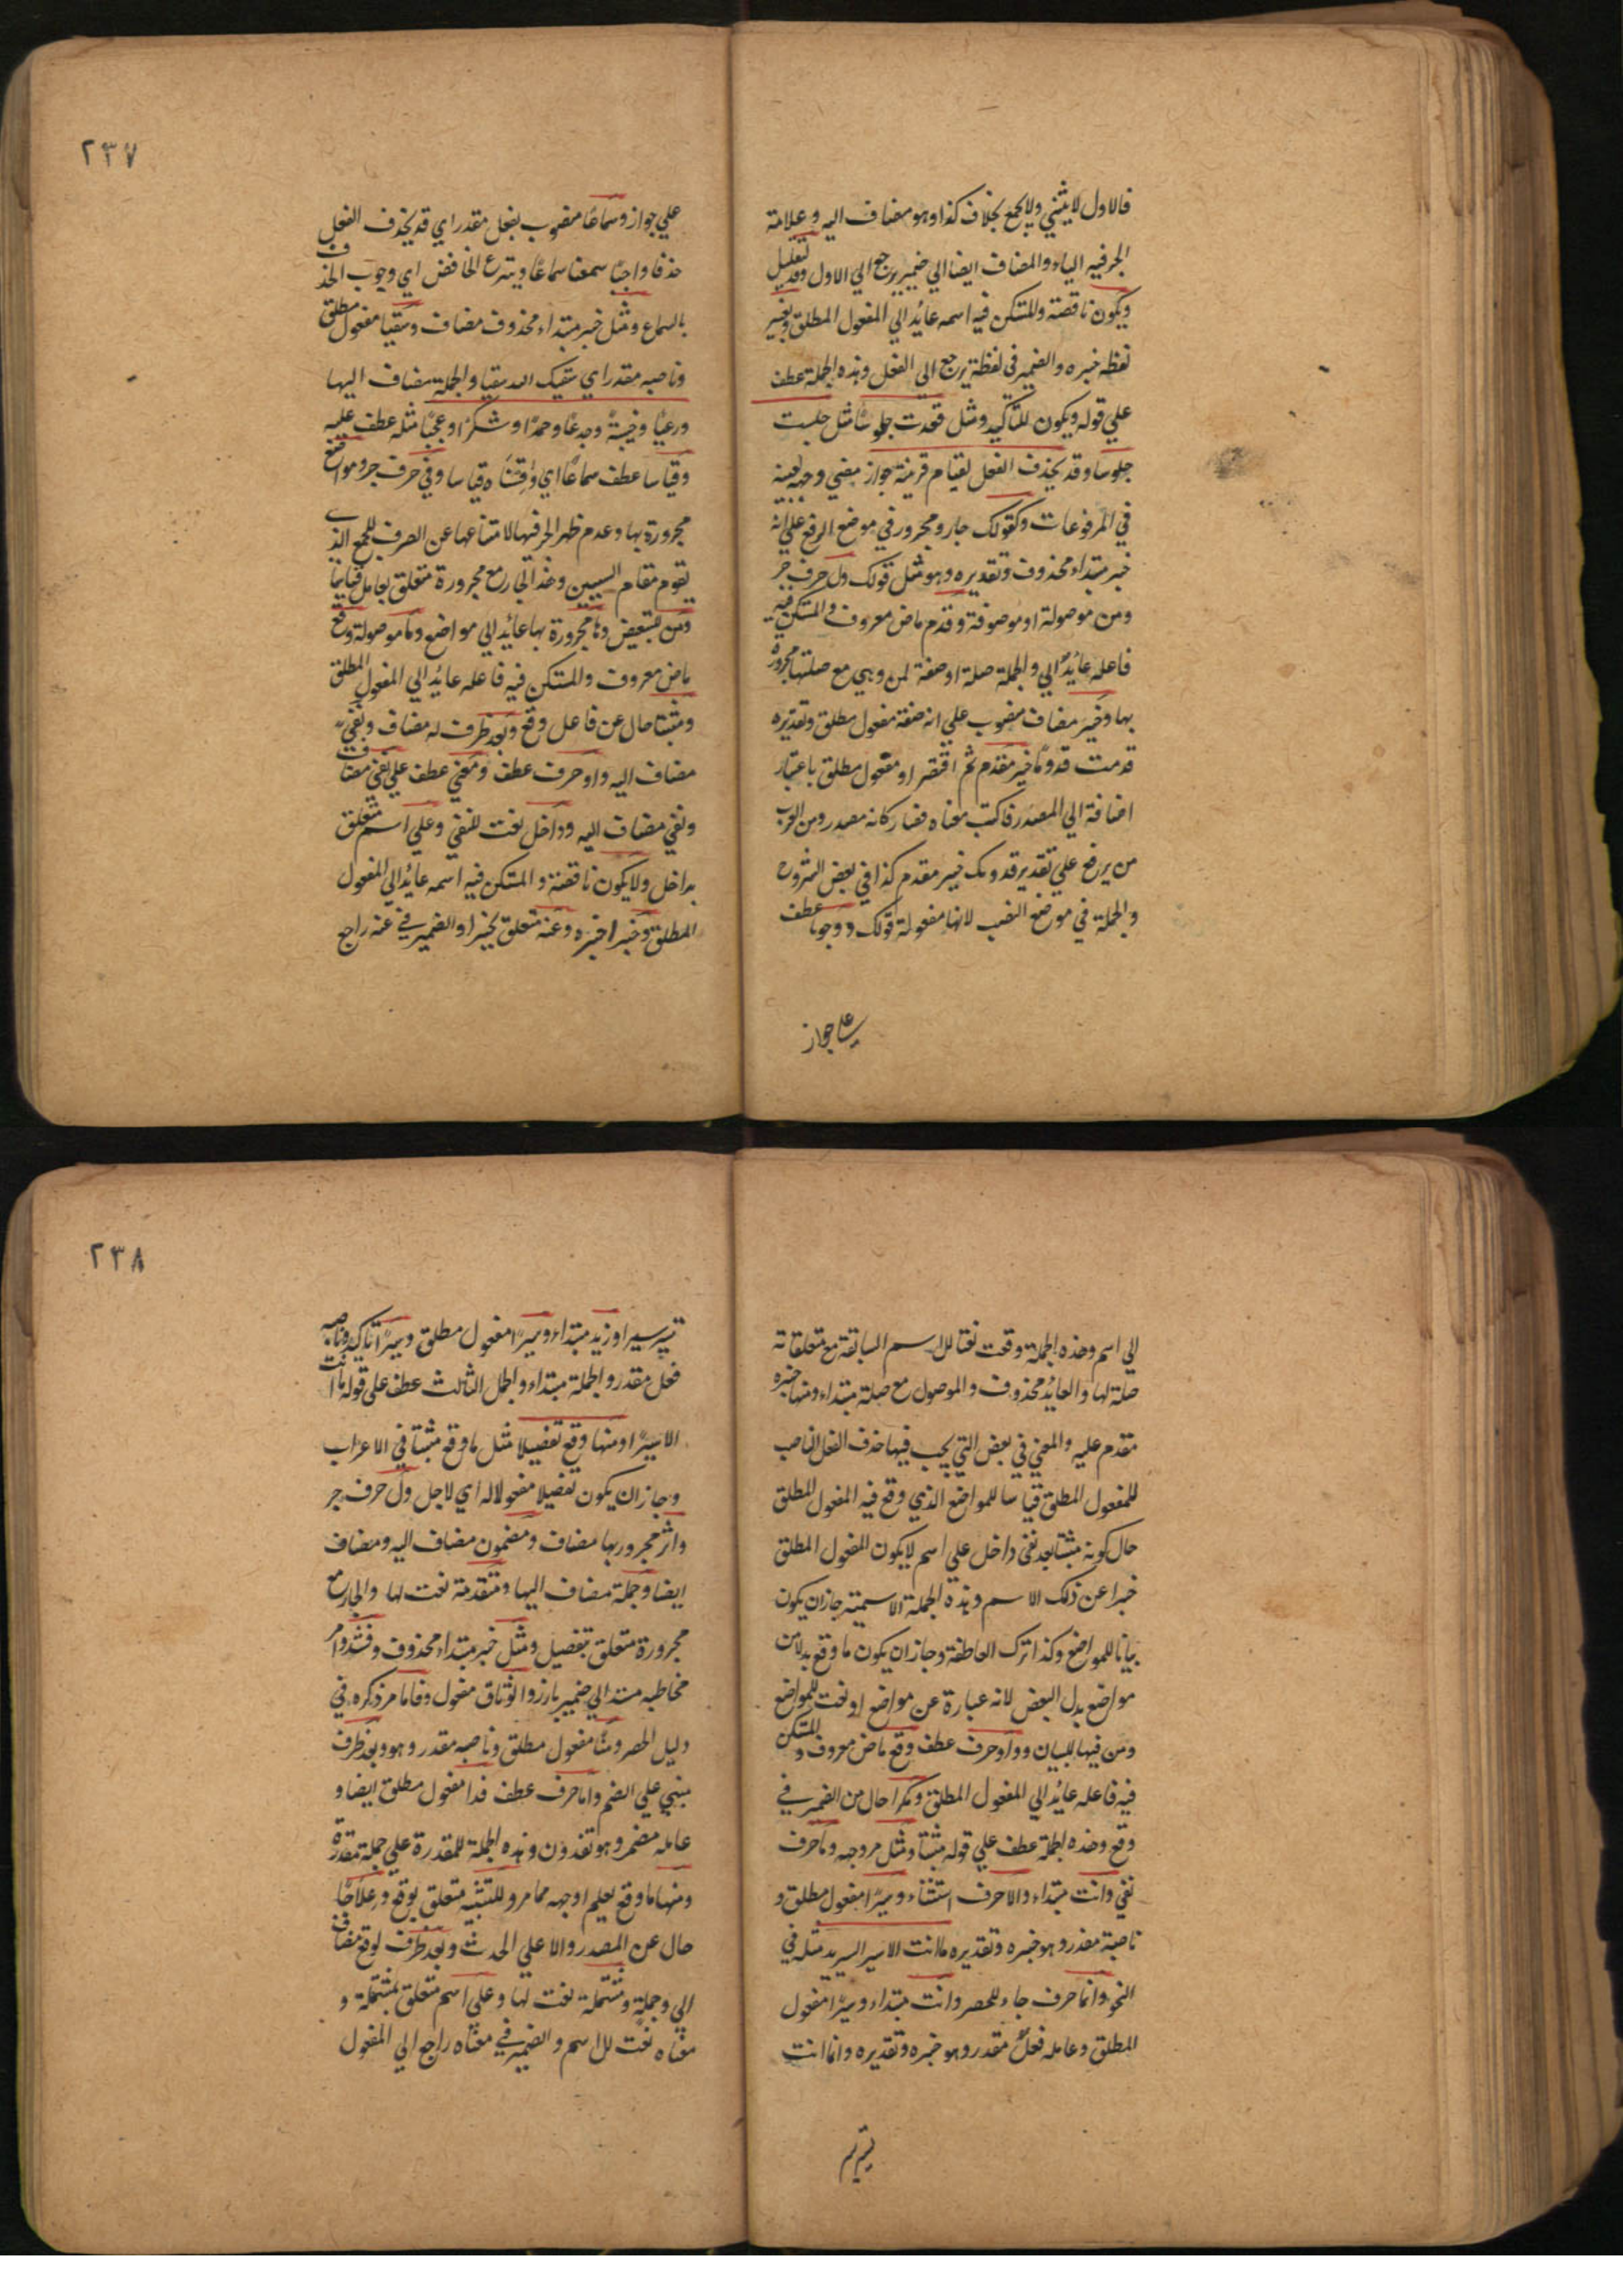 فالاول لا يثني ولا يجمع بخلاف كذا وهو مضاف اليه وعلامة
الجر فيه الياء والمضاف ايضا الي ضمير يرجع الي الاول وقد تعليل
ويكون ناقصة والمستكن فيه اسمه عائد الي المفعول المطلق وبغير
لفظه خبره والضمير في لفظة يرجع الي الفعل وهذه الجملة عطف
علي قوله ويكون للتاكيد ومثل قعدت جلوسا مثل جلست
جلوسا وقد يحذف الفعل لقيام قرينة جواز مضي وجهه
في المرفوعات وكقولك جار ومجرور في موضع الرفع علي انه
خبر مبتداء محذوف وتقديره وهو مثل قولك ول حرف جر
ومن موصولة او موصوفة وقدم ماض معروف والمستكن فيه
فاعله عائد الي والجملة صلة او صفة لمن وهي مع صلتها مجرورة
بها وخير مضاف منصوب علي انه صفة مفعول مطلق وتقديره
قدمت قدوما خير مقدم ثم اختصر او مفعول مطلق باعتبار
اضافة الي المصدر فاكتب معناه فصار كانه مصدر ومن العرب
من يرفع علي تقدير قدومك خير مقدم كذا في بعض الشروح
والجملة في موضع النصب لانها مفعولة قولك ووجوبا عطف
علي جواز
٢٣٧
علي جواز وسماعا منصوب بفعل مقدر اي قد يحذف الفعل
حذفا واجبا سمعنا سماعا وبنزع الخافض اي وجوب الحذف
بالسماع ومثل خبر مبتداء محذوف مضاف وسقيا مفعول مطلق
وناصبه مقدر اي سقيك الله سقيا والجملة مضاف اليها
ورعيا وخيبة وجدعا وحمدا وشكرا وعجبا مثله عطف عليه
وقياسا عطف سماعا اي وقسناه قياسا وفي حرف جر ومواضع
مجرورة بها وعدم ظهر الجر فيها لامتناعها عن الصرف للجمع الذي
يقوم مقام السببين وهذا الجار مع مجرورة متعلق بعامل قياسا
ومن للتبعيض وها مجرورة بها عائد الي مواضع وما موصولة وقع
ماض معروف والمستكن فيه فاعله عائد الي المفعول المطلق
ومثبتا حال عن فاعل وقع وبعد ظرف له مضاف ونفي
مضاف اليه واو حرف عطف ومعني عطف علي نفي مضاف
ونفي مضاف اليه وداخل نعت للنفي وعلي اسم متعلق
بداخل ولا يكون ناقصة والمستكن فيه اسمه عائد الي المفعول
المطلق وخبرا خبره وعنه متعلق بخبرا والضمير في عنه راجع
الي اسم وهذه الجملة وقعت نعتا للاسم السابقة مع متعلقاته
صلة لها والعائد محذوف والموصول مع صلة مبتداء ومنها خبره
مقدم عليه والمعني في بعض التي يجب فيها حذف الفعل الناصب
للمفعول المطلق قياسا للمواضع الذي وقع فيه المفعول المطلق
حال كونه مثبتا بعد نفي داخل علي اسم لا يكون المفعول المطلق
خبرا عن ذلك الاسم وهذه الجملة الاسمية جاز ان يكون
بيانا للمواضع وكذا ترك العاطفة وجاز ان يكون ما وقع بدلا من
مواضع بدل البعض لانه عبارة عن مواضع او نعت للمواضع
ومن فيها للبيان وواو حرف عطف وقع ماض معروف والمستكن
فيه فاعله عائد الي المفعول المطلق ومكررا حال من الضمير في
وقع وهذه الجملة عطف علي قوله مثبتا ومثل مر وجهه وما حرف
نفي وانت مبتداء والا حرف استثناء وسيرا مفعول مطلق و
ناصبة مقدر وهو خبره وتقديره ما انت الا سير البريد مثله في
النحو وانما حرف جاء للحصر وانت مبتداء وسيرا مفعول
المطلق وعامله فعل مقدر وهو خبره وتقديره وانما انت
تسير
٢٣٨
تسير سيرا وزيد مبتداء وسيرا مفعول مطلق وسيرا تاكيد وناصبه
فعل مقدر والجملة مبتداء والجمل الثالث عطف علي قوله ما انت
الا سيرا ومنها وقع تفصيلا مثل ما وقع مثبتا في الاعراب
وجاز ان يكون تفصيلا مفعولا له اي لاجل ول حرف جر
واثر مجرور بها مضاف ومضمون مضاف اليه ومضاف
ايضا وجملة مضاف اليها ومتقدمة نعت لها والجار مع
مجرورة متعلق بتفصيل ومثل خبر مبتداء محذوف وفشدوا امر
مخاطبه مسند الي ضمير بارز والوثاق مفعول وفاما مر ذكره في
دليل الحصر ومنا مفعول مطلق وناصبه مقدر وهو وبعد ظرف
مبني علي الضم واما حرف عطف فدا مفعول مطلق ايضا و
عامله مضمر وهو تفدون وهذه الجملة للمقدرة علي جملة مقدرة
ومنها ما وقع يعلم اوجهه مما مر وللتشبيه متعلق بوقع وعلاجا
حال عن المصدر والا علي الحدث وبعد ظرف لوقع مضاف
الي وجملة ومشتملة نعت لها وعلي اسم متعلق بمشتملة و
معناه نعت للاسم والضمير في معناه راجع الي المفعول